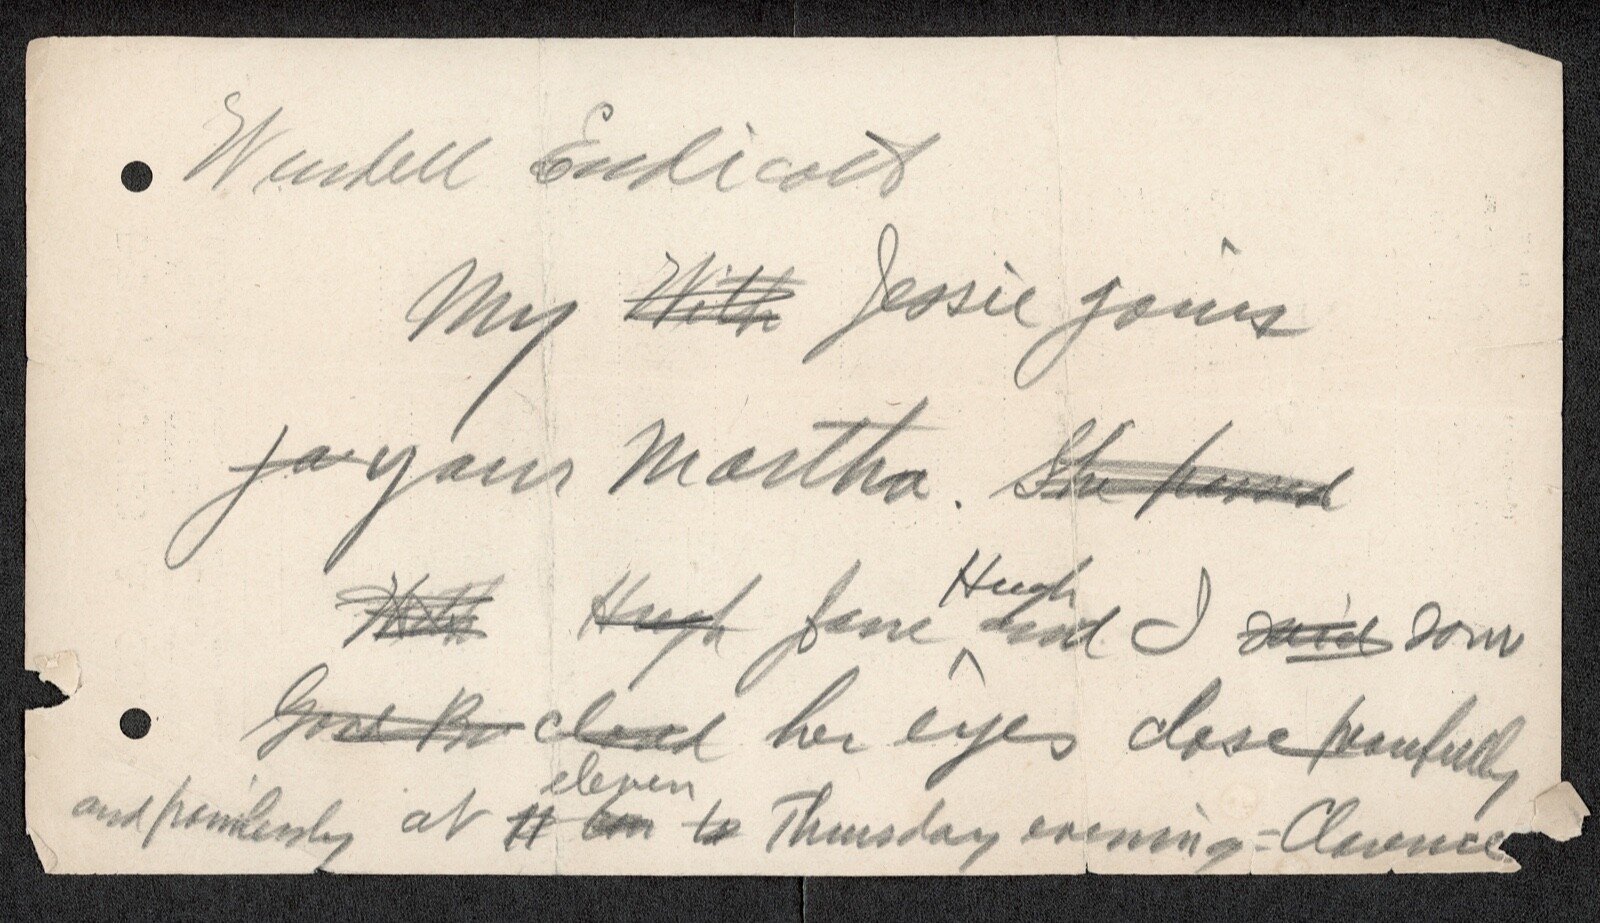 Wendell Endicott
My With Jessie joins
jo your Martha. She passed
With Hugh Jane Hugh and I said saw
Good B closed her eyes close peacefully
and painlessly at 11 eleven to Thursday evening = Clarence